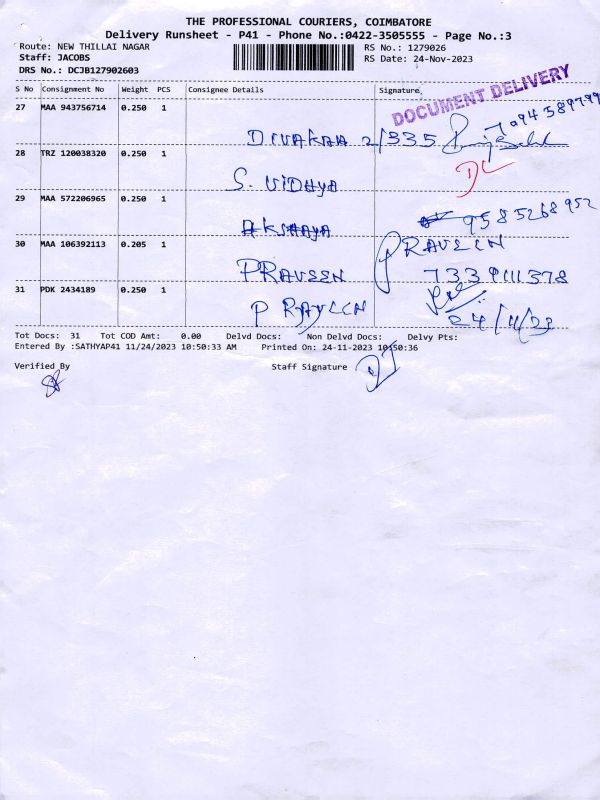 THE PROFESSIONAL COURIERS, COIMBATORE
Delivery Runsheet - P41 - Phone No.:0422-3505555 - Page No.:3
Route: NEW THILLAI NAGAR
RS No.: 1279026
Staff: JACOBS
RS Date: 24-Nov-2023
DRS No.: DCJB127902603
S No Consignment No Weight PCS Consignee Details Signature
DOCUMENT DELIVERY
27 MAA 943756714 0.250 1
DIVAKAR 2/335
28 TRZ 120038320 0.250 1
S. VIDHYA
DL
29 MAA 572206965 0.250 1
AKSHAYA 9585268952
30 MAA 106392113 0.205 1
PRAVEEN
PRAVEEN 7339111378
31 PDK 2434189 0.250 1
PRAVEEN 24/11/23
Tot Docs: 31 Tot COD Amt: 0.00 Delvd Docs: Non Delvd Docs: Delvy Pts:
Entered By :SATHYAP41 11/24/2023 10:50:33 AM Printed On: 24-11-2023 10:50:36
Verified By Staff Signature